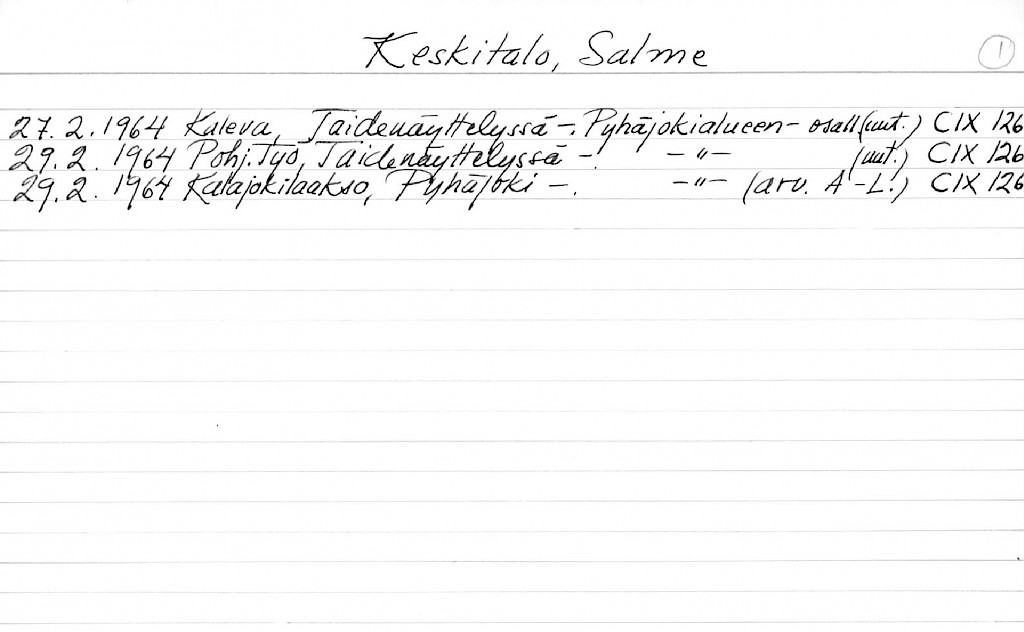 Keskitalo, Salme 1
27. 2. 1964 Kaleva, Taidenäyttelyssä -. Pyhäjokialueen- osall (uut.) CIX 126
29. 2. 1964 Pohj. Työ, Taidenäyttelyssä -. -"- (uut.) CIX 126
29. 2. 1964 Kalajokilaakso, Pyhäjoki -. -"- (arv. A-L.) CIX 126